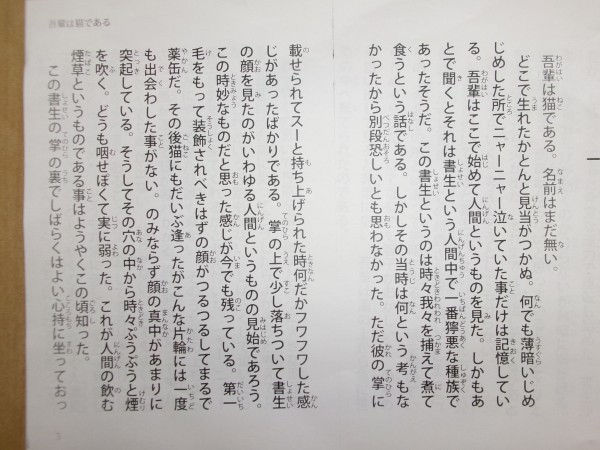 吾輩は猫である
吾輩は猫である。名前はまだ無い。
どこで生れたかとんと見当がつかぬ。何でも薄暗いじめ
じめした所でニャーニャー泣いていた事だけは記憶してい
る。吾輩はここで始めて人間というものを見た。しかもあ
とで聞くとそれは書生という人間中で一番獰悪な種族で
あったそうだ。この書生というのは時々我々を捕えて煮て
食うという話である。しかしその当時は何という考もな
かったから別段恐しいとも思わなかった。ただ彼の掌に
載せられてスーと持ち上げられた時何だかフワフワした感
じがあったばかりである。掌の上で少し落ちついて書生
の顔を見たのがいわゆる人間というものの見始であろう。
この時妙なものだと思った感じが今でも残っている。第一
毛をもって装飾されべきはずの顔がつるつるしてまるで
薬缶だ。その後猫にもだいぶ逢ったがこんな片輪には一度
も出会わした事がない。のみならず顔の真中があまりに
突起している。そうしてその穴の中から時々ぷうぷうと煙
を吹く。どうも咽せぽくて実に弱った。これが人間の飲む
煙草というものである事はようやくこの頃知った。
この書生の掌の裏でしばらくはよい心持に坐っておっ